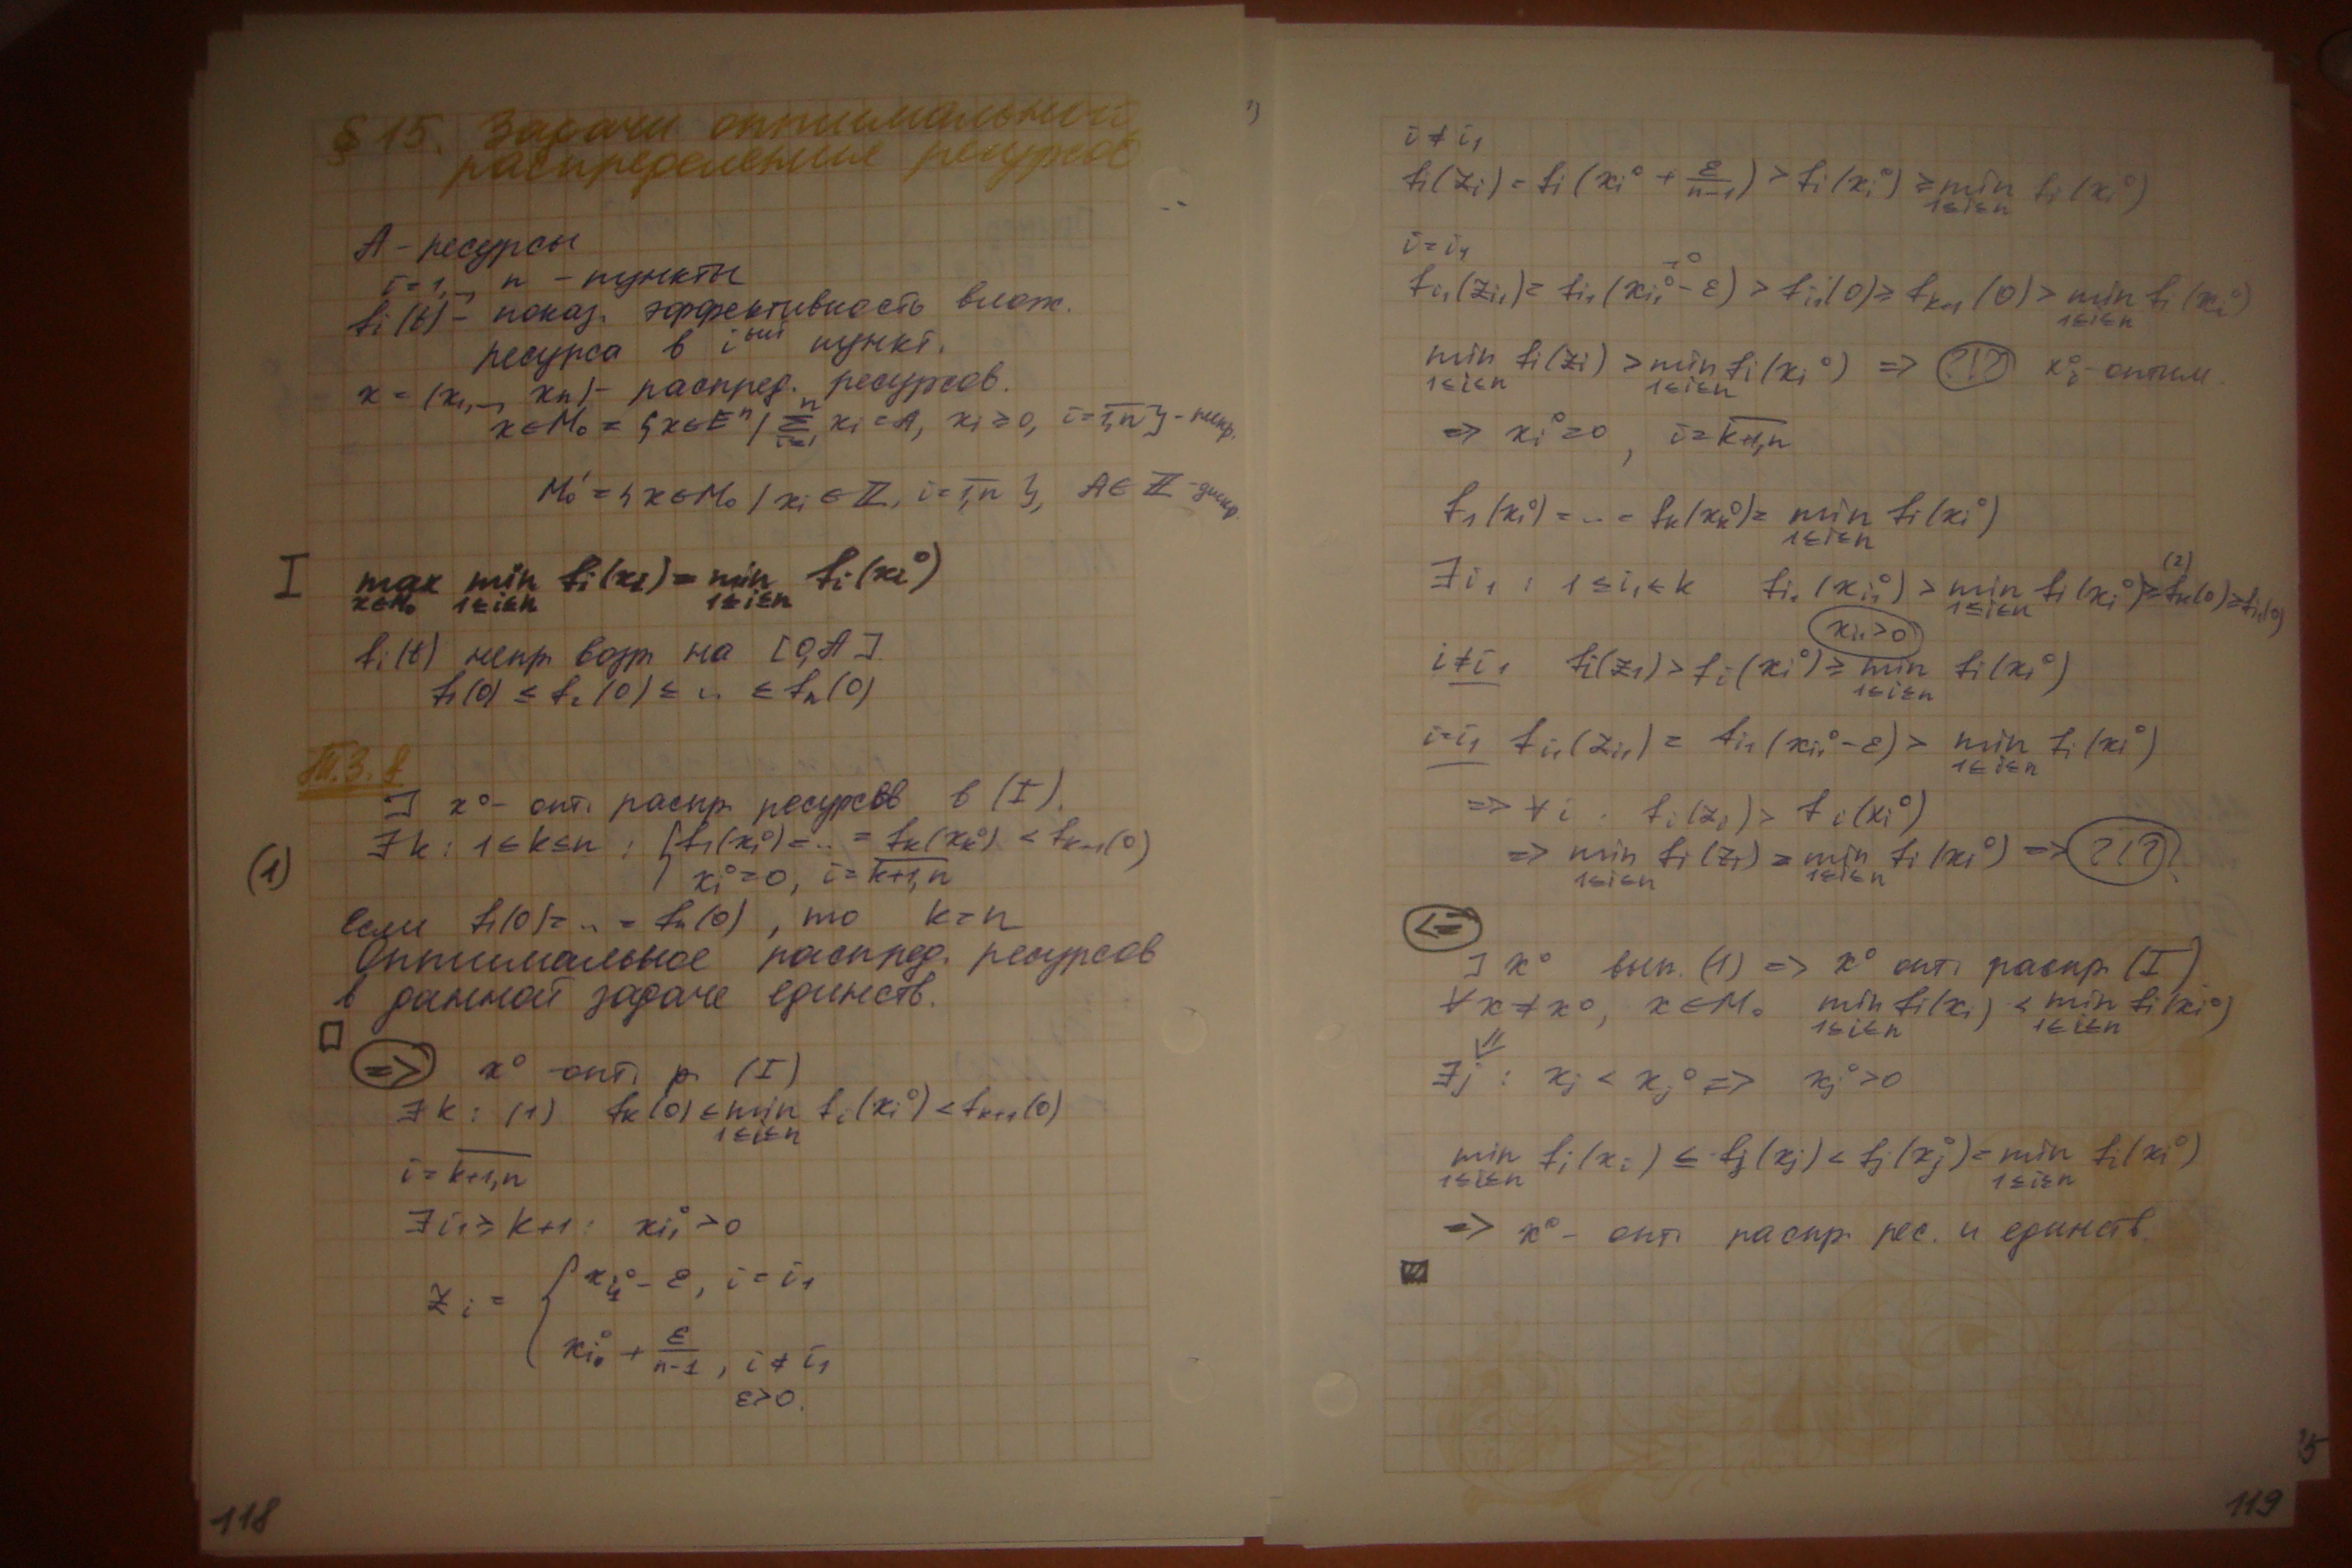 § 15. Задачи оптимальный
распределения ресурсов
A - ресурсы
i=1,.., n - пункты
fi(t) - показ. эффективность влож.
ресурса в iый пункт.
x = (x1,.., xn) - распред. ресурсов.
x∈M0 = {x∈Eⁿ / Σ(i=1..n) xi = A, xi ≥ 0, i=1,n} - непр.
M0' = {x∈M0 / xi ∈ ℤ, i=1,n}, A∈ℤ - дискр.
I max(x∈M0) min(1≤i≤n) fi(xi) = min(1≤i≤n) fi(xi⁰)
fi(t) непр. возр. на [0,A].
f1(0) ≤ f2(0) ≤ .. ≤ fn(0)
] x⁰ - опт. распр. ресурсов в (I).
(1) ∃k: 1≤k≤n : { f1(x1⁰) = .. = fk(xk⁰) < fk+1(0)
xi⁰=0, i=k+1,n
Если f1(0) = .. = fn(0), то k=n
Оптимальное распред. ресурсов
в данной задаче единств.
□
=> x⁰ - опт. р. (I)
∃k: (1) fk(0) ≤ min(1≤i≤n) fi(xi⁰) < fk+1(0)
i=k+1,n
∃i1 ≥ k+1: xi1⁰ > 0
zi = { xi1⁰ - ε, i=i1
xi⁰ + ε/(n-1), i≠i1
ε>0.
118
i≠i1
fi(zi) = fi(xi⁰ + ε/(n-1)) > fi(xi⁰) ≥ min(1≤i≤n) fi(xi⁰)
i=i1
fi1(zi1) = fi1(xi1⁰ - ε) > fi1(0) ≥ fk+1(0) > min(1≤i≤n) fi(xi⁰)
min(1≤i≤n) fi(zi) > min(1≤i≤n) fi(xi⁰) => ?!? xi⁰ - оптим.
=> xi⁰=0, i=k+1,n
f1(x1⁰) = .. = fk(xk⁰) = min(1≤i≤n) fi(xi⁰)
∃i1 : 1≤i1≤k fi1(xi1⁰) > min(1≤i≤n) fi(xi⁰) ≥(2) fk(0) ≥ fi1(0)
xi1>0
i≠i1 fi(zi) > fi(xi⁰) ≥ min(1≤i≤n) fi(xi⁰)
i=i1 fi1(zi1) = fi1(xi1⁰-ε) > min(1≤i≤n) fi(xi⁰)
=> ∀i . fi(zi) > fi(xi⁰)
=> min(1≤i≤n) fi(zi) ≥ min(1≤i≤n) fi(xi⁰) => ?!?
<=
] x⁰ вып. (1) => x⁰ опт. распр. (I)
∀x≠x⁰, x∈M0 min(1≤i≤n) fi(xi) < min(1≤i≤n) fi(xi⁰)
∃j : xj < xj⁰ => xj⁰>0
min(1≤i≤n) fi(xi) ≤ fj(xj) < fj(xj⁰) = min(1≤i≤n) fi(xi⁰)
=> x⁰ - опт. распр. рес. и единств.
■
119